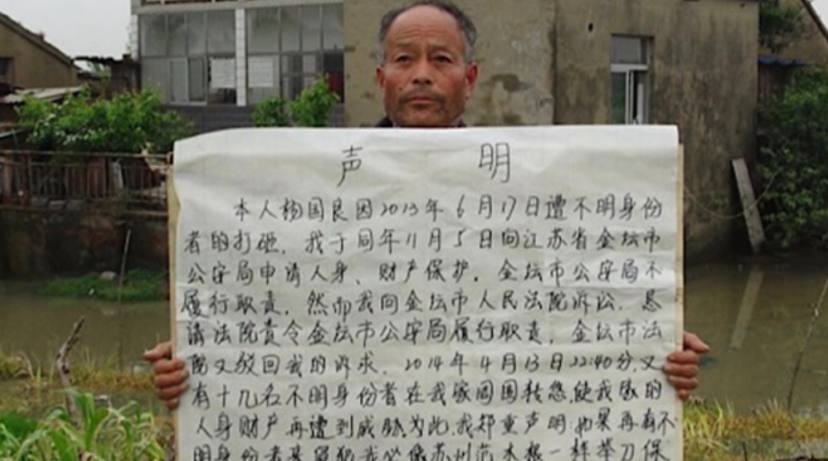 声 明
本人杨国良因2013年6月17日遭不明身份
者的打砸，我于同年11月5日向江苏省金坛市
公安局申请人身、财产保护，金坛市公安局不
履行职责，然而我向金坛市人民法院诉讼，恳
请法院责令金坛市公安局履行职责，金坛市法
院又驳回我的诉求，2014年4月13日22:40分，又
有十几名不明身份者在我家周围转悠，使我家的
人身财产再遭到威胁，为此，我郑重声明：如果再有不
明身份者 我必像苏州范木根一样举刀保